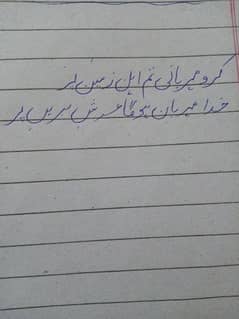 کرو مہربانی تم اہل زمیں پر
خدا مہرباں ہوگا عرش بریں پر